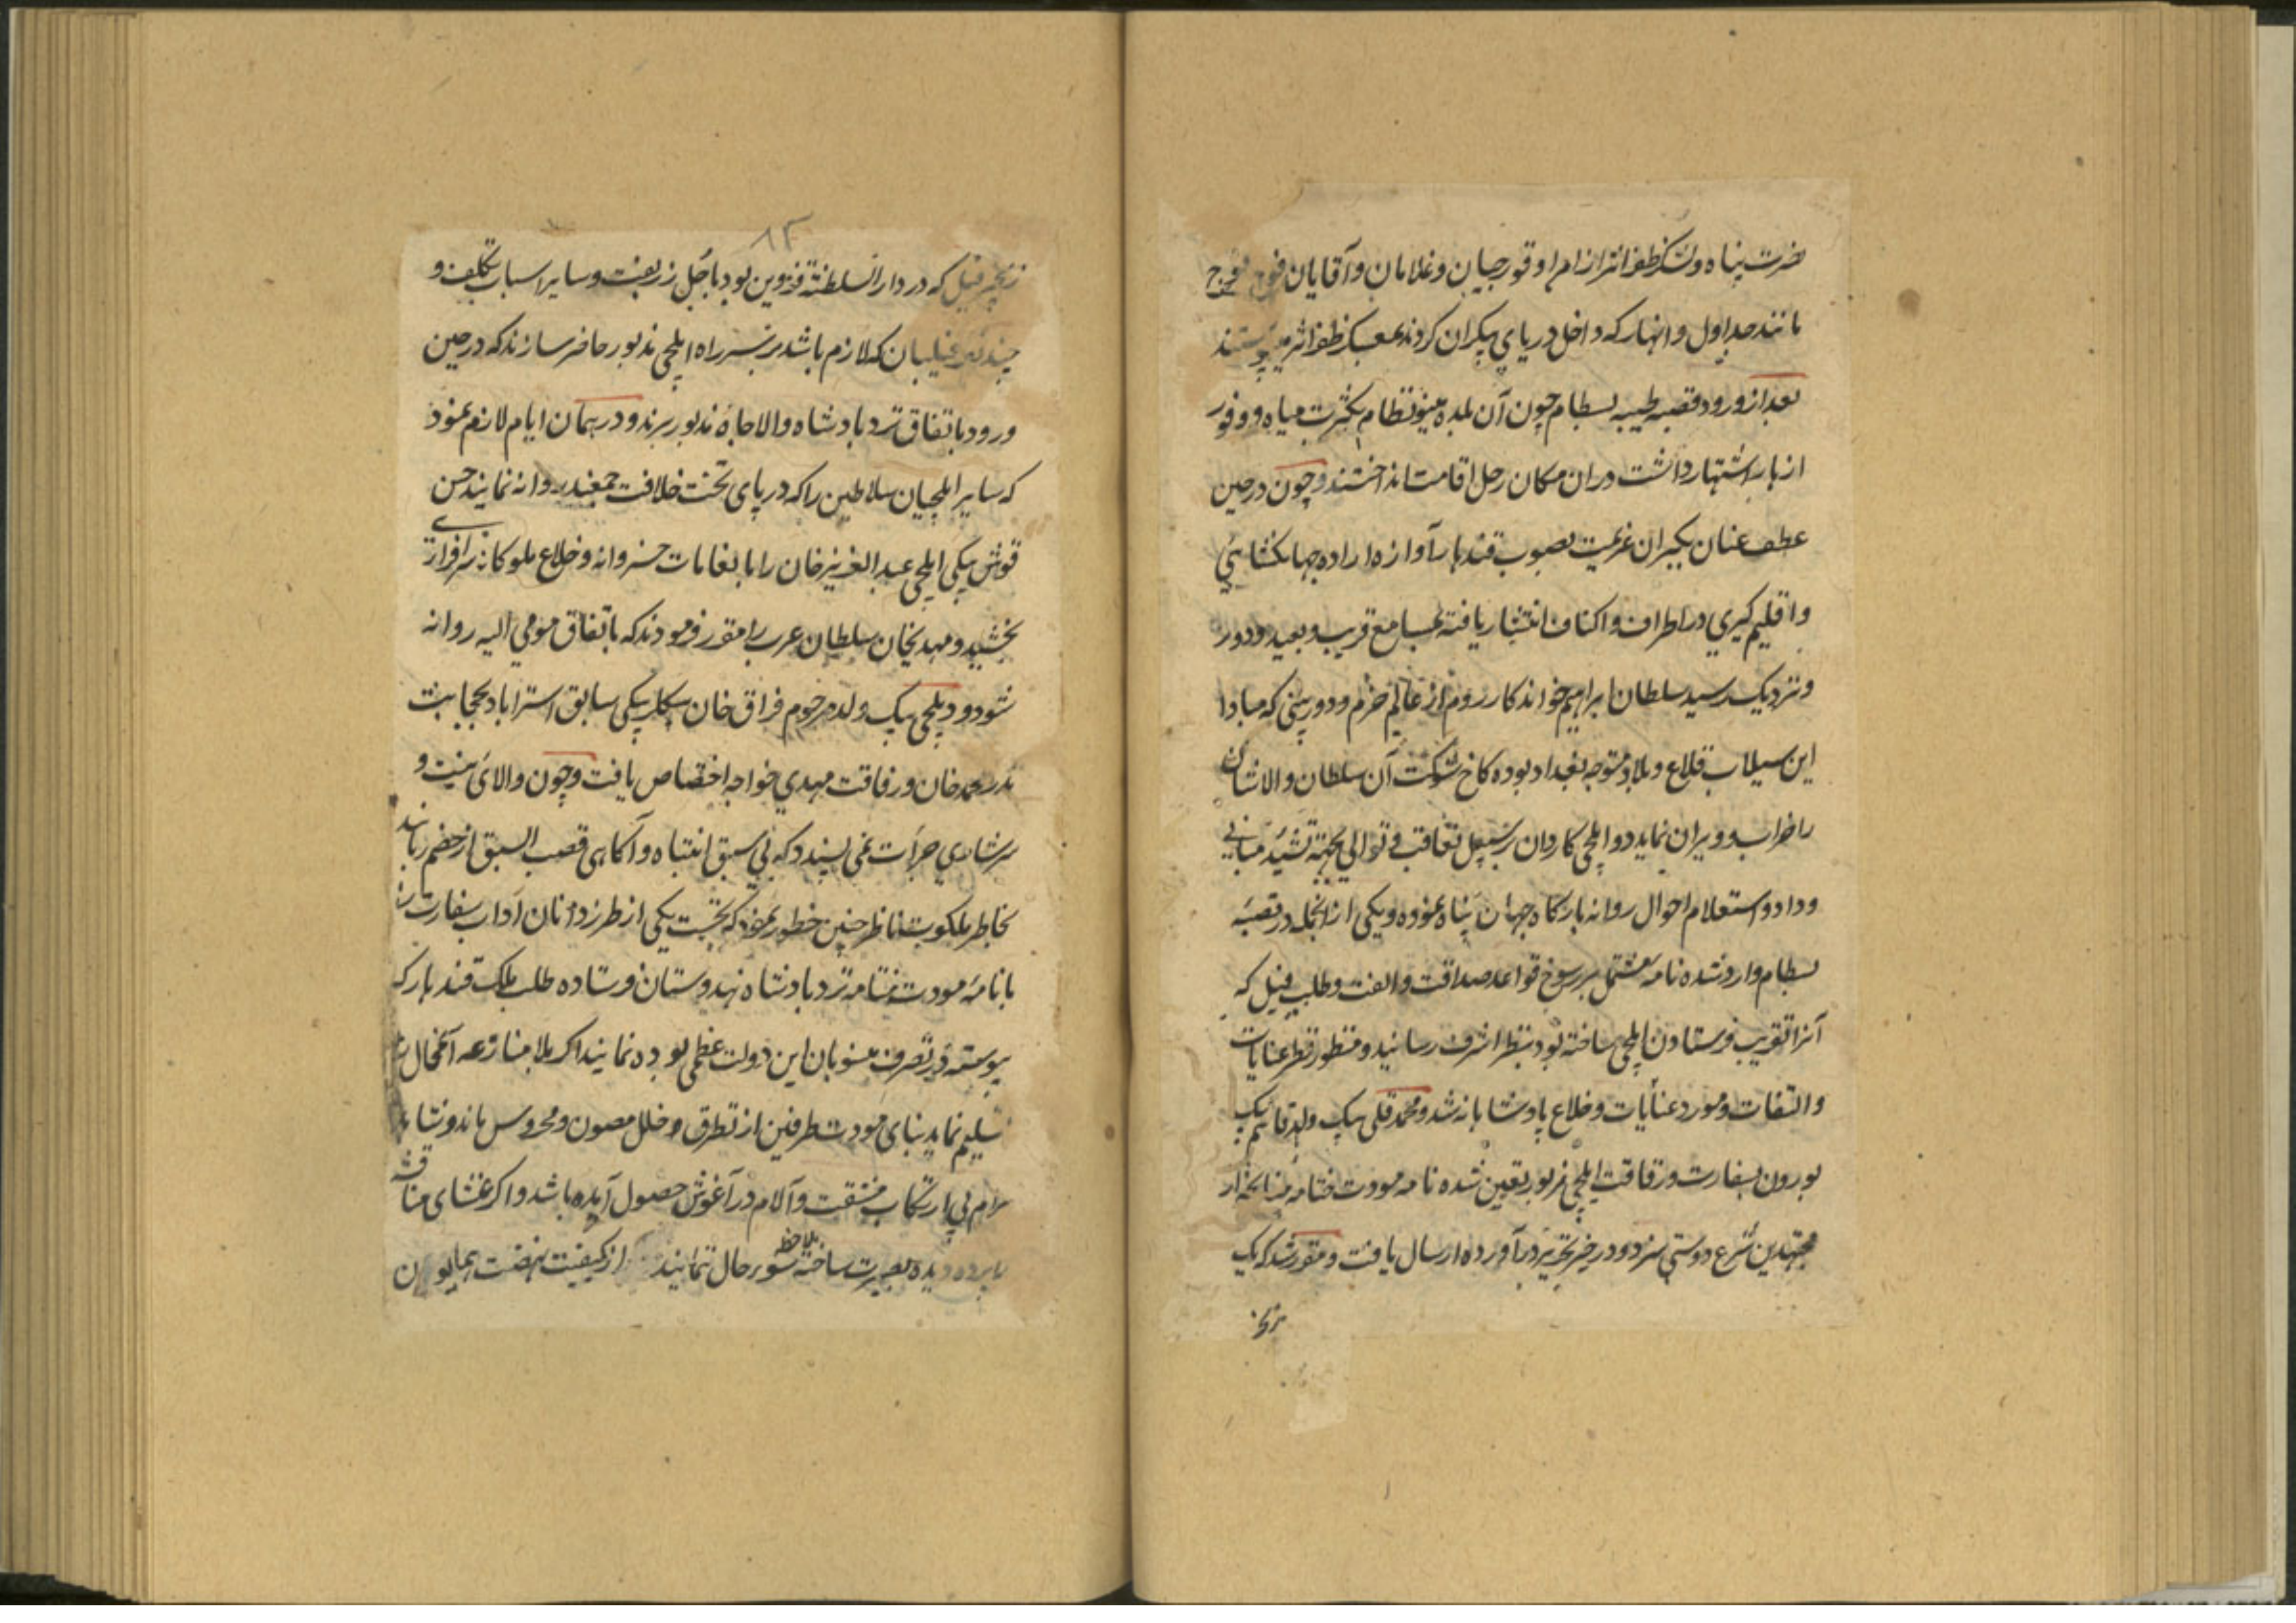 نصرت پناه و لشکر ظفر اثر از امرا و قورچیان و غلامان و آقایان فوج فوج
مانند جداول و انهار که داخل دریای بیکران کردند بمعسکر ظفر اثر می پیوستند
بعد از ورود قصبه طیبه بسطام چون آن بلده مینو نظام بکثرت میاه و وفور
ازهار اشتهار داشت در ان مکان رحل اقامت انداختند و چون در حین
عطف عنان یکران عزیمت بصوب قندهار آوازه اراده جهانکشائی
و اقلیم کیری در اطراف و اکناف انتشار یافته بمسامع قریب و بعید و دور
و نزدیک رسید سلطان ابراهیم خواندکار روم از عالم حزم و دوربینی که مبادا
این سیلاب قلاع و بلاد متوجه بغداد بوده کاخ شوکت آن سلطان والاشان
را خراب و ویران نماید دو ایلچی کاردان بر سبیل تعاقب و توالی بجهته تشئید مبانی
وداد و استعلام احوال روانه بارکاه جهان پناه نموده و یکی از انجمله در قصبه
بسطام وارد شده نامه مشتمل بر رسوخ قواعد صداقت و الفت و طلب فیل که
آنرا تقریب فرستادن ایلچی ساخته بود بنظر اشرف رسانید و منظور نظر عنایات
و التفات و مورد عنایات و خلاع پادشاهانه شد و محمد قلی بیک ولد قاسم بیک
بورون بسفارت و رفاقت ایلچی مزبور تعیین شده نامه مودت ختامه
مجتهدین شرع دوستی سزد و در خیر تحریر در آورده ارسال یافت و مقرر شد که یک
زنجیر
۸۳
زنجیر فیل که در دار السلطنة قزوین بود با جُل زربفت و سایر اسباب تکلف و
چند نفر فیلبان که لازم باشد بر سر راه ایلچی مذبور حاضر سازند که در حین
ورود باتفاق نزد بادشاه والاجاه مذبور برند و در همان ایام لازم نمود
که سایر ایلچیان سلاطین را که در پای تخت خلافت جمعند روانه نمایند حسن
قوش بیکی ایلچی عبد العزیز خان را با نعامات خسروانه و خلاع ملوکانه سرافرازی
بخشید و مهدیخان سلطان عرب را مقرر فرمودند که باتفاق مومی الیه روانه
شود و دیلمچی بیک ولد مرحوم فراق خان بیکلربیکی سابق استراباد بحجابت
ندر محمد خان و رفاقت مهدی خواجه اختصاص یافت و چون والائی همت و
سرشاری جرأت نمی پسندد که بی سبق انتباه و آکاهی قصب السبق از خصم ربایند
بخاطر ملکوت ناظر چنین خطور نمود که نخست یکی از طرز دانان آداب سفارت را
با نامه مودت ختامه نزد بادشاه هندوستان فرستاده طلب ملک قندهار که
پیوسته در تصرف منسوبان این دولت عظمی بوده نمایند اکر بلا منازعه آنمحال را
تسلیم نماید بنای مودت طرفین از تطرق و خلل مصون و محروس باند و شاهد
مرام بی ارتکاب مشقت و آلام در آغوش حصول آمده باشد و اکر غشای مناقشه
را پرده دیده بصیرت ساخته ملاحظه شور حال ننمایند از کیفیت نهضت همایون